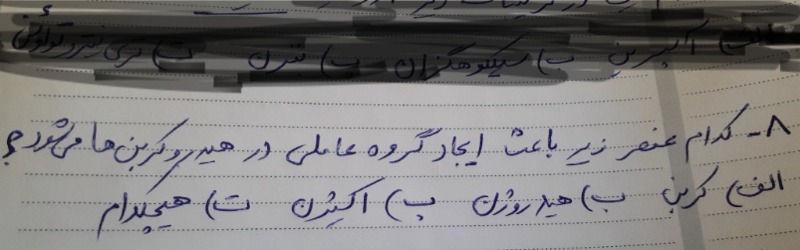 الف) آسپرین ب) سیکلوهگزان پ) تترن ت) تری نیترو تولوئن
۸- کدام عنصر زیر باعث ایجاد گروه عاملی در هیدروکربن ها می شود؟
الف) کربن ب) هیدروژن پ) اکسیژن ت) هیچکدام